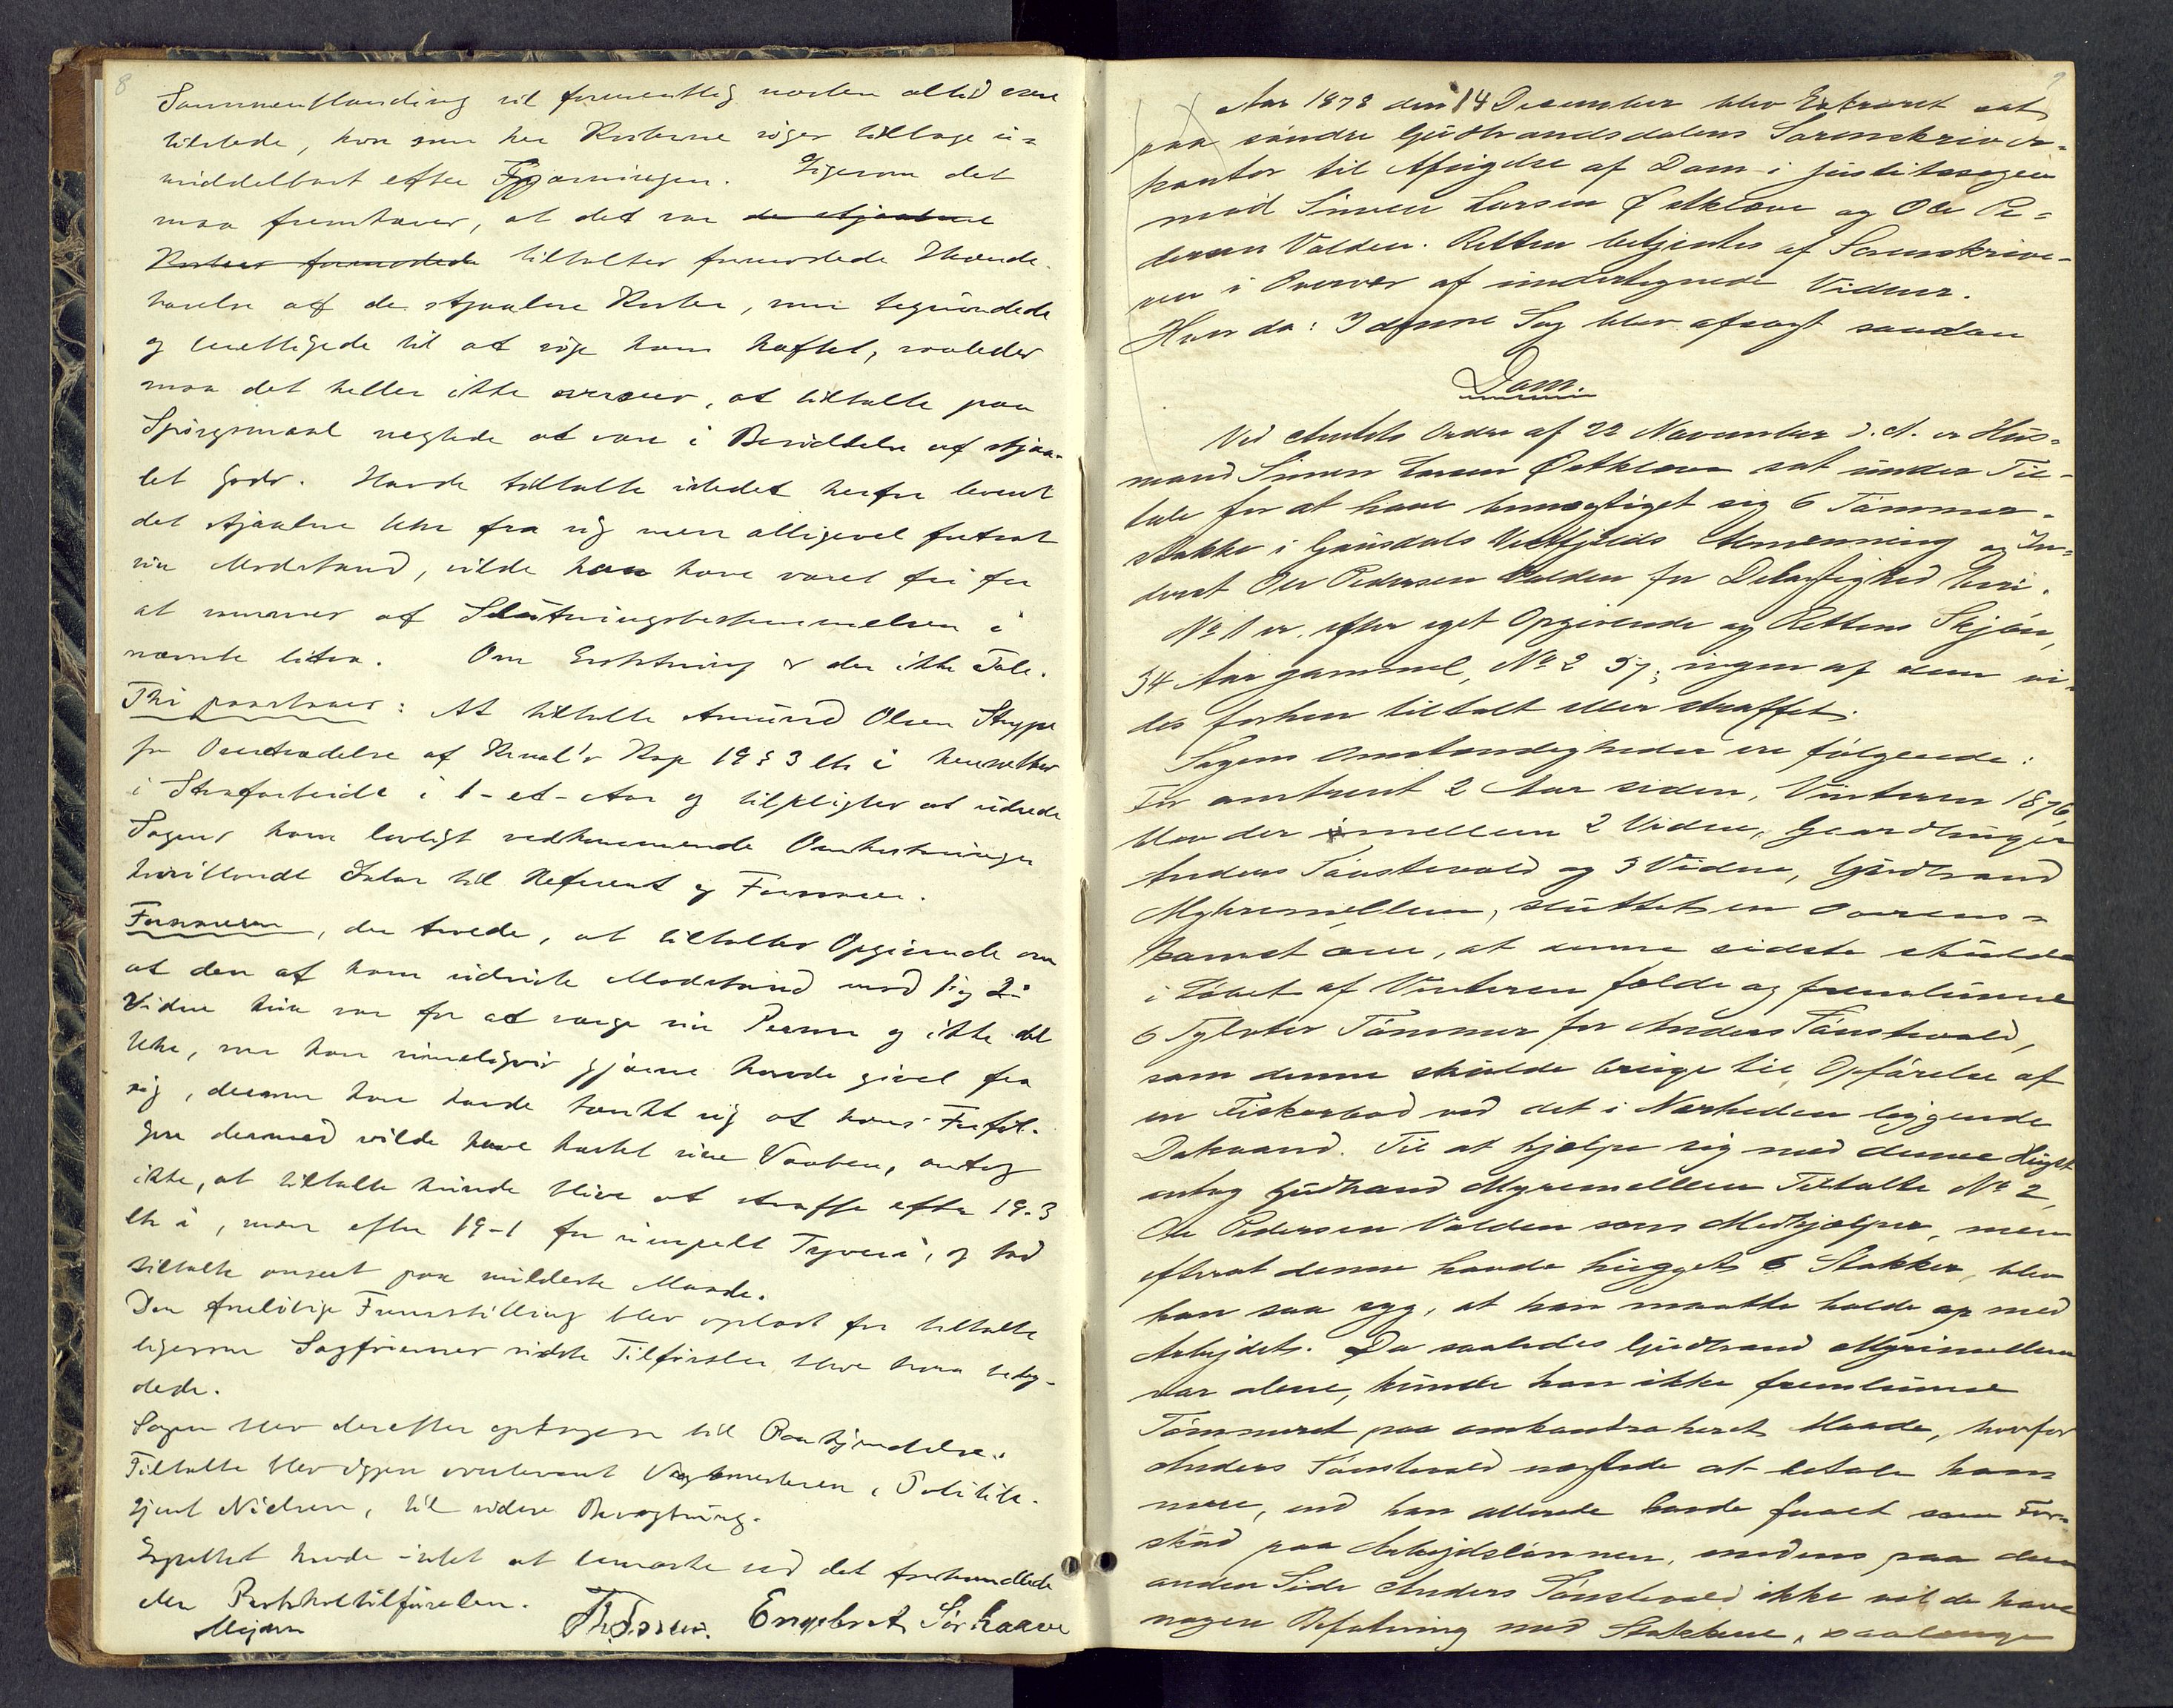 8
Sammenblanding vil formentlig næsten altid være
tilstede, hvor som her Kosterne søges tilbage u-
middelbart efter Gjærningen. Ligesom det
maa fremhæves, at det var de stjaalne
Koster formodede tiltaltes formodede Ihænde-
havelse af de stjaalne Koster, som begrundede
og berettigede til at søge ham hæftet, saaledes
maa det heller ikke oversees, at tiltalte paa
Spørgsmaal negtede at være i Besiddelse af stjaa-
let Gods. Havde tiltalte istedet herfor leveret
det stjaalne Uhr fra sig men alligevel fortsat
sin Modstand, vilde han have været fri for
at rammes af Slutningsbestemmelsen i
nævnte litra. Om Erstatning er der ikke Tale.
Thi paastaaes: At tiltalte Amund Olsen Skyppe
for Overtrædelse af Kriml's Kap 19 § 3 ltr i hensættes
i Strafarbeide i 1-et-Aar og tilpligtes at udrede
Sagens ham lovligt vedkommende Omkostninger
hvoriblandt Salær til Referent og Forsvarer.
Forsvareren, der troede, at tiltaltes Opgivende om
at den af ham udviste Modstand mod 1 og 2
Vidne kun var for at værge sin Person og ikke det
Uhr, som han rimeligvis gjerne havde givet fra
sig, dersom han havde tænkt sig at hans Forføl-
gere dermed vilde have kastet sine Vaaben, antog
ikke, at tiltalte kunde blive at straffe efter 19-3
ltr i, men efter 19-1 for simpelt Tyveri, og bad
tiltalte anseet paa mildeste Maade.
Den foreløbige Fremstilling blev oplæst for tiltalte
ligesom Sagførernes sidste Tilførsler blev ham betyd-
dede.
Sagen blev derefter optagen til Paakjendelse.
Tiltalte blev igjen overleveret Vagtmesteren, Politibe-
tjent Nielsen, til videre Bevogtning.
Engebret havde intet at bemærke ved det forhandlede
eller Protokoltilførelsen.
Mejdell Th. Engebret Sørhaave
9
Aar 1878 den 14 December blev Extraret sat
paa søndre Gudbrandsdalens Sorenskriver-
kontor til Afsigelse af Dom i Justitssagen
mod Simen Larsen Østkleven og Ole Pe-
dersen Volden. Retten betjentes af Sorenskrive-
ren i Overvær af undertegnede Vidner.
Hvorda: I denne Sag blev afsagt saadan
Dom.
Ved Amtets Ordre af 22 November d. A. er Hus-
mand Simen Larsen Østkleven sat under Til-
tale for at have bemægtiget sig 6 Tømmer-
stokke i Gausdals Vestfjelds Almenning og In-
derst Ole Pedersen Volden for Delagtighed heri.
No 1 er, efter eget Opgivende og Rettens Skjøn,
54 Aar gammel, No 2 57; ingen af dem vi-
des forhen tiltalt eller straffet.
Sagens Omstændigheder ere følgende:
For omtrent 2 Aar siden, Vinteren 1876,
blev der imellem 2 Vidne, Gaardbruger
Anders Taustevold og 3 Vidne, Gudbrand
Myhremellem, sluttet en Overens-
komst om, at denne sidste skulde
i Løbet af Vinteren fælde og fremlunne
6 Tylvter Tømmer for Anders Taustevold,
som denne skulde bruge til Opførelse af
en Fiskerbod ved det i Nærheden liggende
Dokvand. Til at hjælpe sig med denne Hugst
antog Gudbrand Myremellem Tiltalte No 2,
Ole Pedersen Volden som Medhjælper, men
efterat denne havde hugget 6 Stokker, blev
han saa syg, at han maatte holde op med
Arbejdet. Da saaledes Gudbrand Myremellem
var alene, kunde han ikke fremlunne
Tømmeret paa omkontraheret Maade, hvorfor
Anders Taustevold negtede at betale ham
mere, end han allerede havde faaet som For-
skud paa Arbejdslønnen, medens paa den
anden Side Anders Taustevold ikke vilde have
nogen Befatning med Stokkene, saalænge